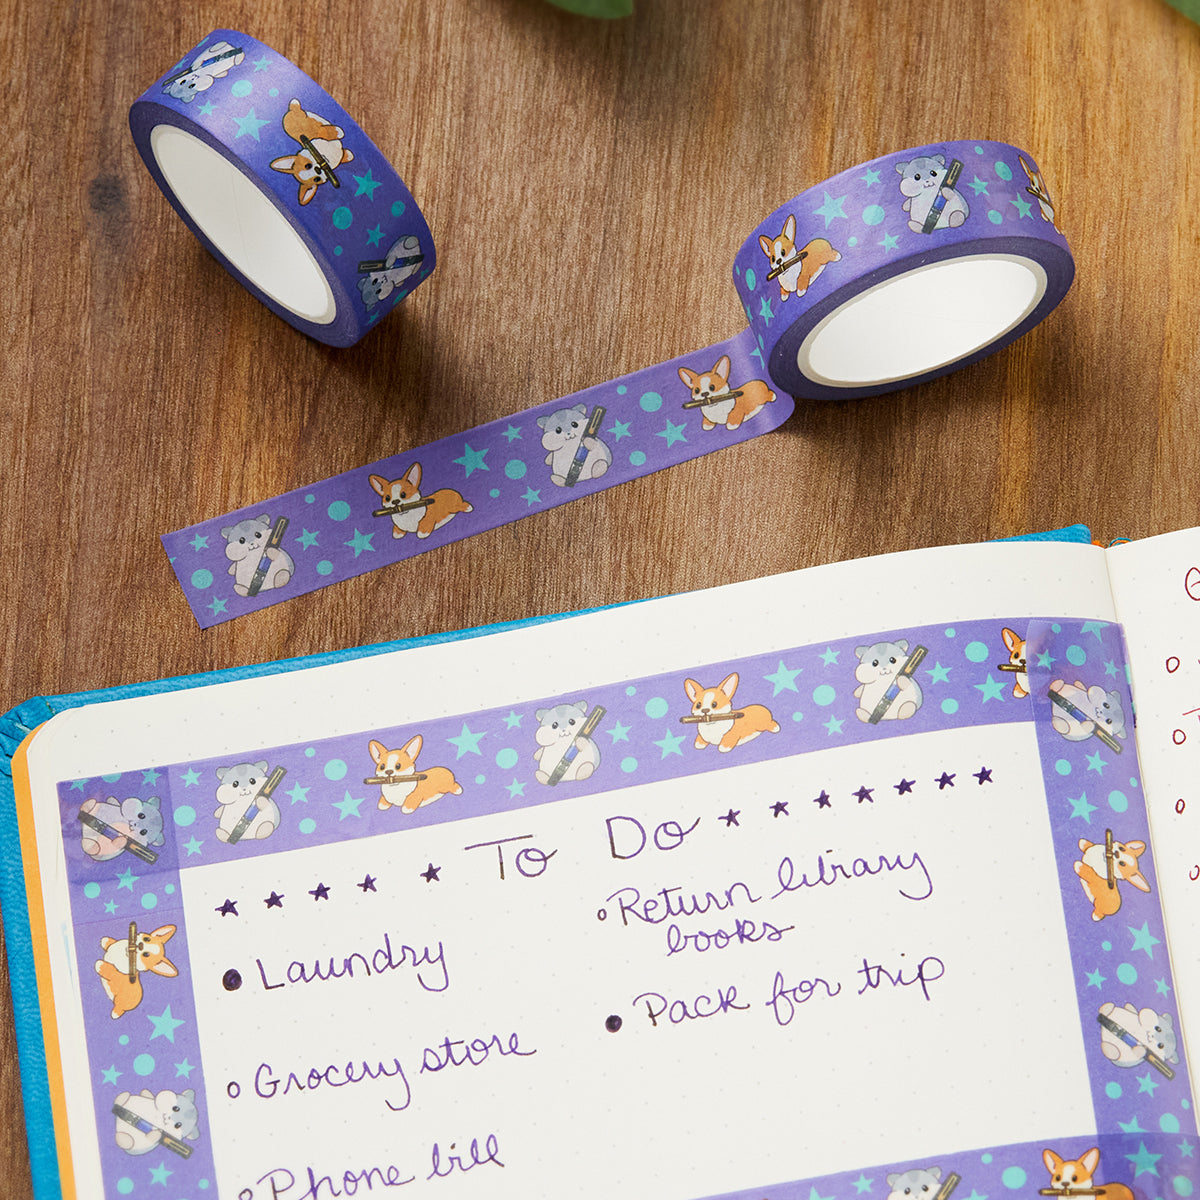 To Do
Laundry
Grocery store
Phone bill
Return library
books
Pack for trip